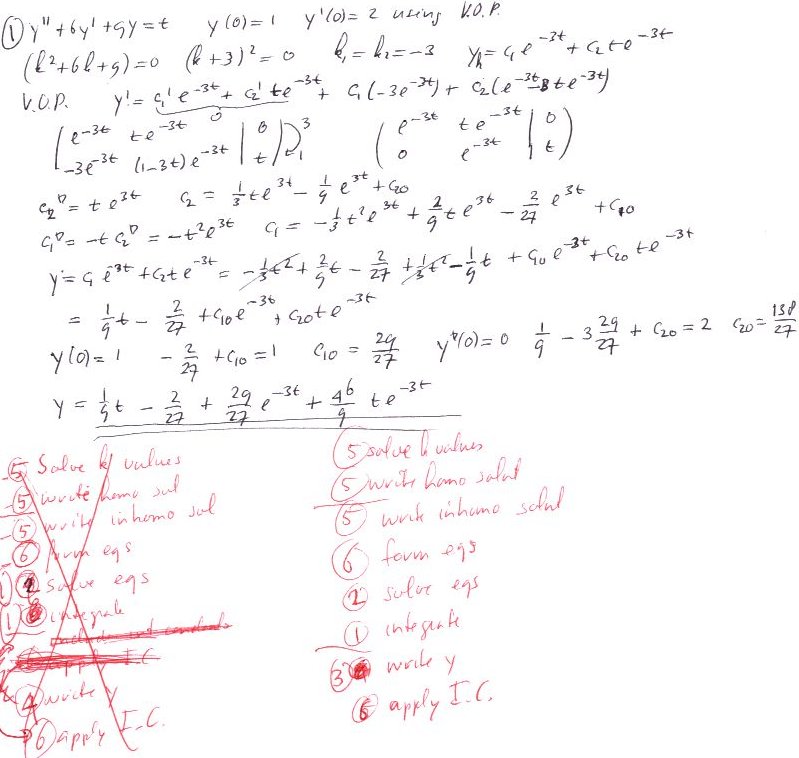 ① y" + 6y' + 9y = t   y(0) = 1   y'(0) = 2 using V.O.P.
(k²+6k+9) = 0   (k+3)² = 0   k₁ = k₂ = -3   yₕ = c₁e^-3t + c₂te^-3t
V.O.P.   y' = c₁'e^-3t + c₂'te^-3t + c₁(-3e^-3t) + c₂(e^-3t -3te^-3t)
0
( e^-3t   te^-3t | 0 )   3   ( e^-3t   te^-3t | 0 )
( -3e^-3t   (1-3t)e^-3t | t )   1   ( 0   e^-3t | t )
c₂' = te^3t   c₂ = 1/3 te^3t - 1/9 e^3t + c₂₀
c₁' = -tc₂' = -t²e^3t   c₁ = -1/3 t²e^3t + 2/9 te^3t - 2/27 e^3t + c₁₀
y = c₁e^-3t + c₂te^-3t = -1/3 t² + 2/9 t - 2/27 + 1/3 t² - 1/9 t + c₁₀e^-3t + c₂₀te^-3t
= 1/9 t - 2/27 + c₁₀e^-3t + c₂₀te^-3t
y(0) = 1   -2/27 + c₁₀ = 1   c₁₀ = 29/27   y'(0) = 0   1/9 - 3 29/27 + c₂₀ = 2   c₂₀ = 138/27
y = 1/9 t - 2/27 + 29/27 e^-3t + 46/9 te^-3t
-⑤ Solve k values
-⑤ write homo sol
-⑤ write inhomo sol
-⑥ form eqs
② solve eqs
① integrate
apply I.C.
④ write y
⑥ apply I.C.
⑤ solve k values
⑤ write homo solut
⑤ write inhomo solut
⑥ form eqs
② solve eqs
① integrate
③ write y
⑥ apply I.C.